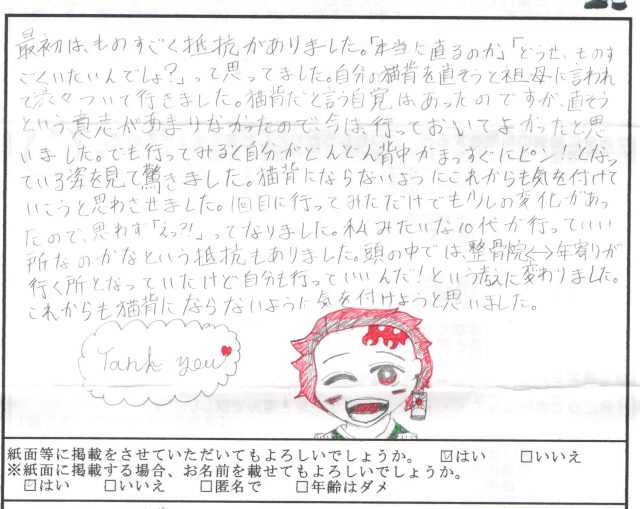 最初は、ものすごく抵抗がありました。「本当に直るのか」「どうせ、ものす
ごくいたいんでしょ?」って思ってました。自分の猫背を直そうと祖母に言われ
て渋々ついて行きました。猫背だと言う自覚は、あったのですが、直そう
という意志があまりなかったので今は、行っておいてよかったと思
いました。でも行ってみると自分がどんどん背中がまっすぐにピン!となっ
ている姿を見て驚きました。猫背にならないようにこれからも気を付けて
いこうと思わさせました。1回目に行ってみただけでも少しの変化があっ
たので、思わず「えっ?!」ってなりました。私みたいな10代が行っていい
所なのかなという抵抗もありました。頭の中では、整骨院<->年寄りが
行く所となっていたけど自分も行っていいんだ!という考えに変わりました。
これからも猫背にならないように気を付けようと思いました。
Tank you
紙面等に掲載をさせていただいてもよろしいでしょうか。 ☑はい □いいえ
※紙面に掲載する場合、お名前を載せてもよろしいでしょうか。
☑はい □いいえ □匿名で □年齢はダメ